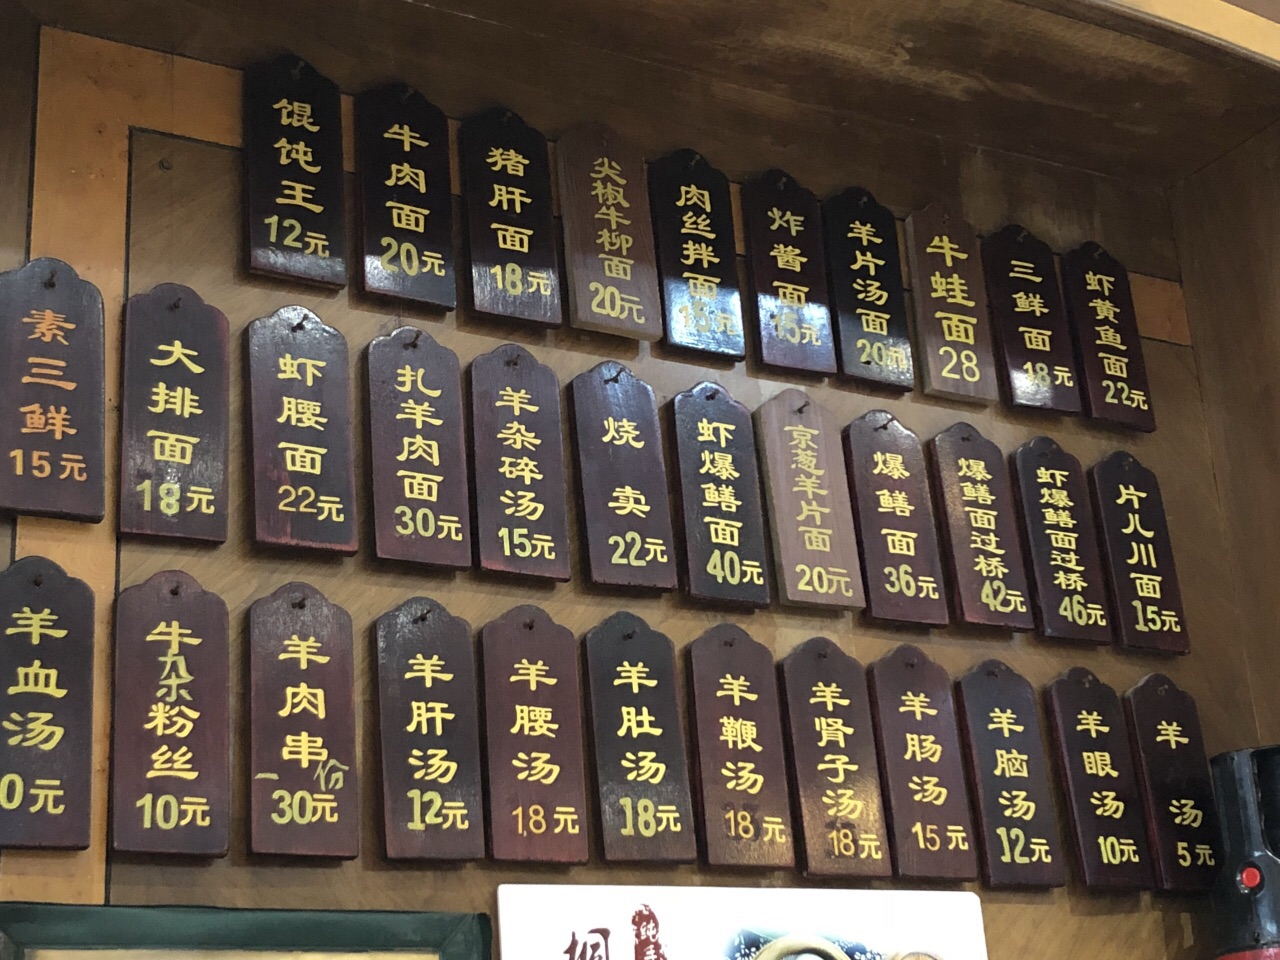 馄饨王
12元
牛肉面
20元
猪肝面
18元
尖椒牛柳面
20元
肉丝拌面
15元
炸酱面
15元
羊片汤面
20元
牛蛙面
28
三鲜面
18元
虾黄鱼面
22元
素三鲜
15元
大排面
18元
虾腰面
22元
扎羊肉面
30元
羊杂碎汤
15元
烧卖
22元
虾爆鳝面
40元
京葱羊片面
20元
爆鳝面
36元
爆鳝面过桥
42元
虾爆鳝面过桥
46元
片儿川面
15元
羊血汤
0元
牛杂粉丝
10元
羊肉串
一份
30元
羊肝汤
12元
羊腰汤
18元
羊肚汤
18元
羊鞭汤
18元
羊肾子汤
18元
羊肠汤
15元
羊脑汤
12元
羊眼汤
10元
羊汤
5元
桐
纯手